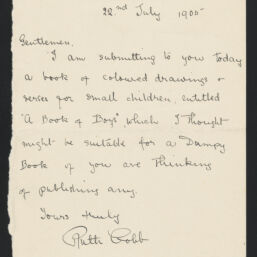 22nd July 1905
Gentlemen,
I am submitting to you today
a book of coloured drawings &
verses for small children, entitled
"A Book of Boys", which I thought
might be suitable for a Dumpy
Book if you are thinking
of publishing any.
Yours truly
Ruth Cobb